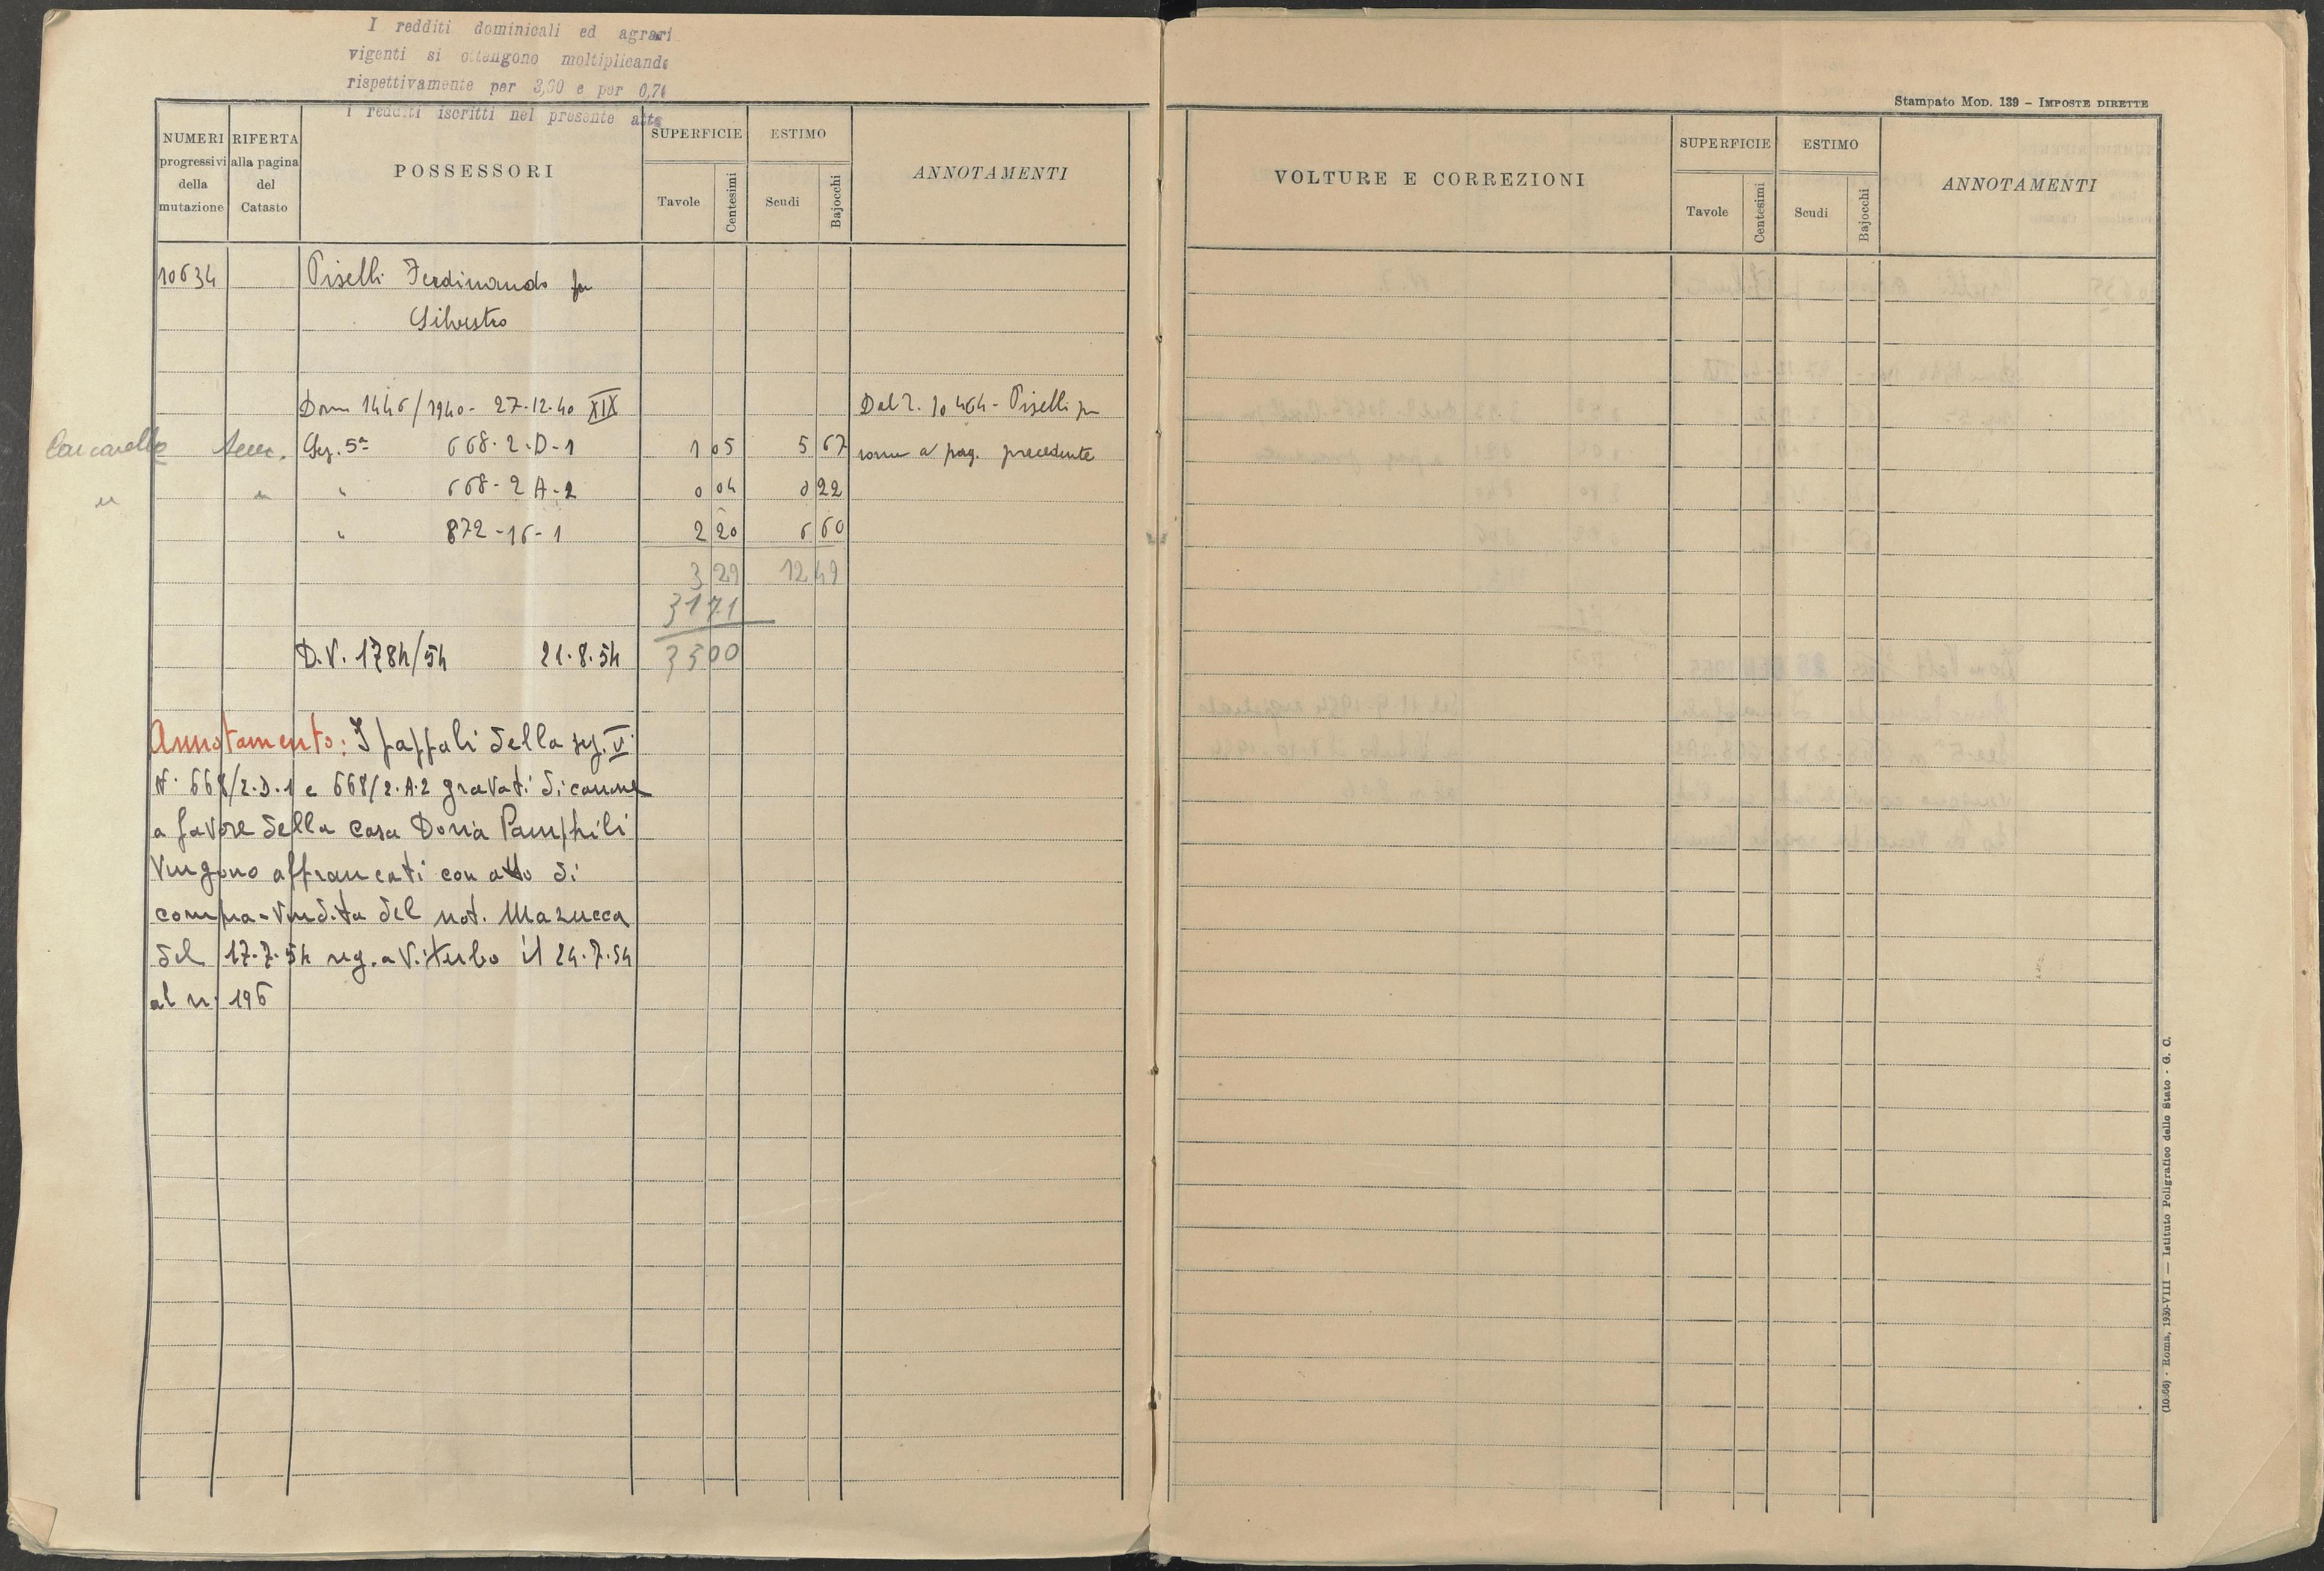 I redditi dominicali ed agrari
vigenti si ottengono moltiplicando
rispettivamente per 3,60 e per 0,74
i redditi iscritti nel presente atto
NUMERI progressivi della mutazione
RIFERTA alla pagina del Catasto
POSSESSORI
SUPERFICIE
Tavole
Centesimi
ESTIMO
Scudi
Bajocchi
ANNOTAMENTI
10634 Piselli Ferdinando fu
Silvestro
Dom 1446/1940 - 27-12-40 XIX Dal 2. 10464 - Piselli fu
Sez. 5ª 668-2-D-1 1 05 5 67 come a pag. precedente
" 668-2 A-2 0 04 0 22
" 872-16-1 2 20 6 60
3 29 12 49
31 71
D.V. 1784/54 21.8.54 35 00
Annotamento: I fappali della sez. V
N. 668/2.D.1 e 668/2.A.2 gravati di canone
a favore della casa Doria Pamphili
vengono affrancati con atto di
compra-vendita del not. Mazucca
del 17.7.54 reg. a Viterbo il 24.7.54
al n. 196
Stampato MOD. 139 - IMPOSTE DIRETTE
VOLTURE E CORREZIONI
SUPERFICIE
Tavole
Centesimi
ESTIMO
Scudi
Bajocchi
ANNOTAMENTI
Roma, 1930-VIII — Istituto Poligrafico dello Stato - G. C.